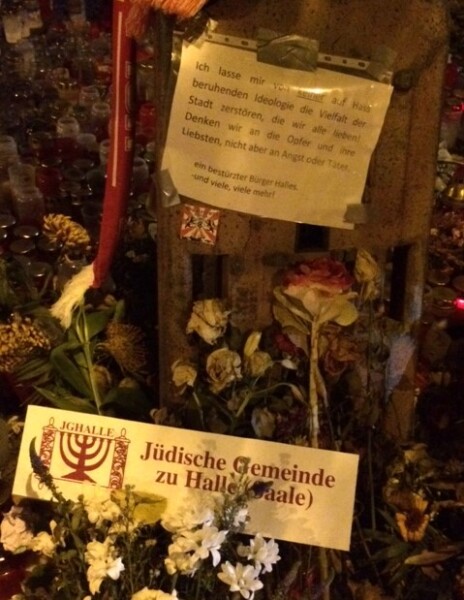 Ich lasse mir von keiner auf Hass
beruhenden Ideologie die Vielfalt der
Stadt zerstören, die wir alle lieben!
Denken wir an die Opfer und ihre
Liebsten, nicht aber an Angst oder Täter.
ein bestürzter Bürger Halles
-und viele, viele mehr!
JGHALLE
Jüdische Gemeinde
zu Halle (Saale)